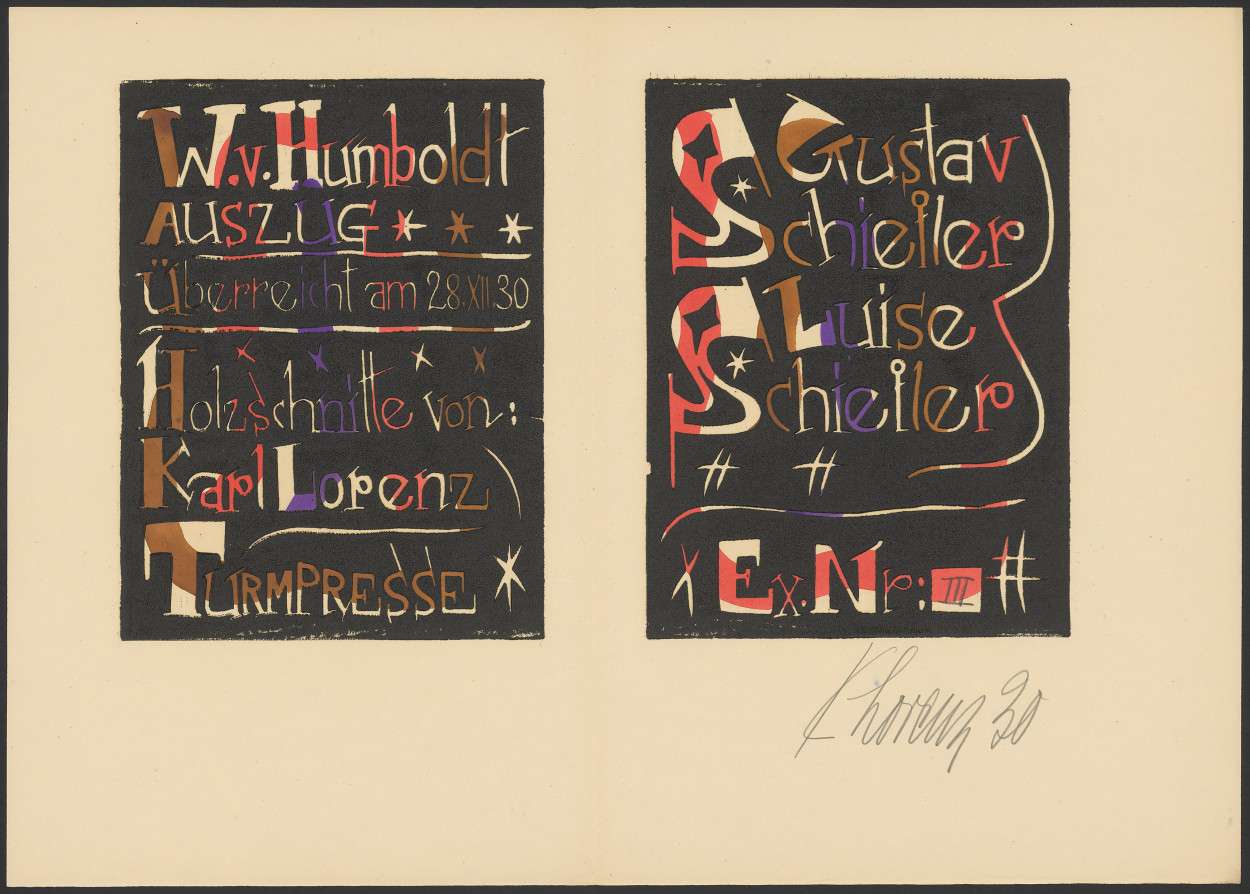 W.v.Humboldt
AUSZUG
Überreicht am 28.XII.30
Holzschnitte von:
Karl Lorenz
TURMPRESSE
Gustav
Schiefler
Luise
Schiefler
Ex. Nr: III
K Lorenz 30